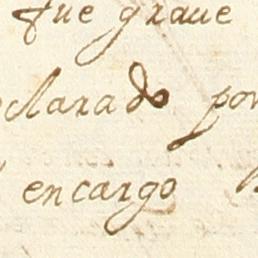 fue graue
clarado por
encargo